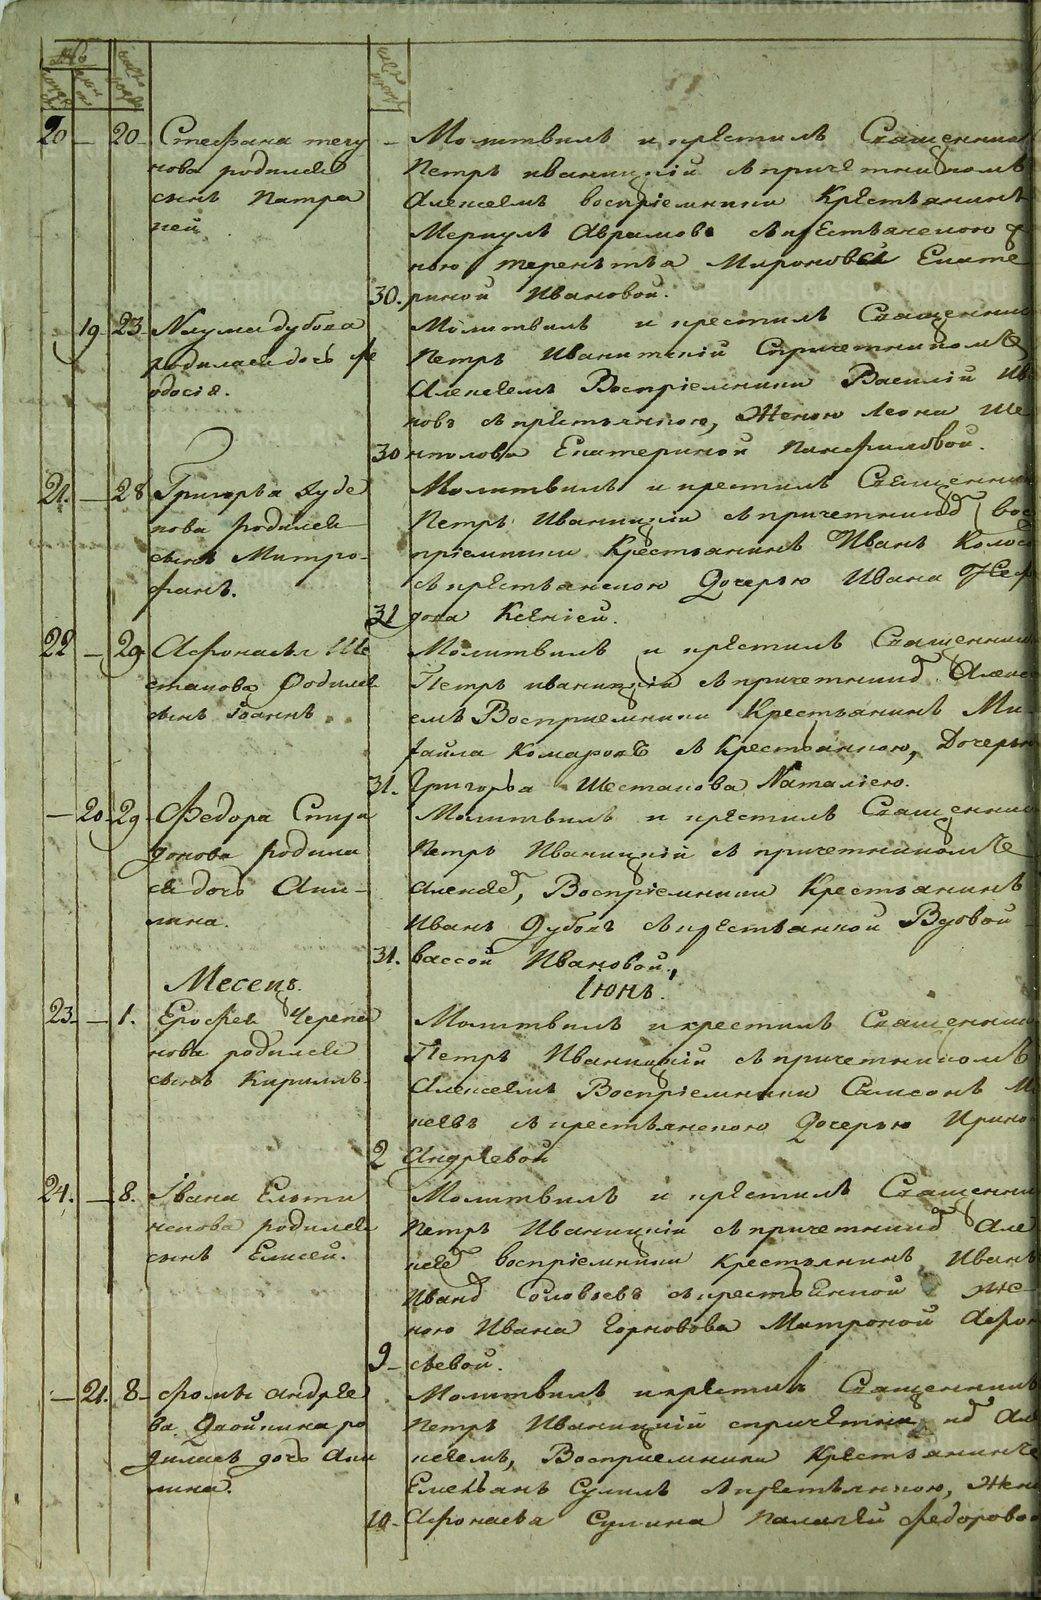 20 — 20 Стефана тегу
нова родился
сынъ Патри
кей
Молитвилъ и крестилъ Священникъ
Петръ Иваницкій съ причетникомъ
Алексеемъ воспріемники Крестьянинъ
Меркулъ Аврамовъ съ крестьянскою ж
ною терентья Миронова Екате
30. риной Ивановой.
19 23 Наума дубова
родилась дочь Фе
одосія.
Молитвилъ и крестилъ Священник
Петръ Иваницкій Спричетникомъ
Алексеемъ Воспріемники Василій Ив
новъ съ крестьянкою, Женою Леона Ше
30 Екатериной Панфиловой.
21. — 28 Григорья Дубе
нова родился
сынъ Митро-
фанъ.
Молитвилъ и крестилъ Священник
Петръ Иваницкій съ причетником вос
пріемники Крестьянинъ Иванъ Колос
съ крестьянскою Дочерью Ивана
31 Ксеніей.
22 — 29 Афонасья Ше
стакова родился
сынъ Іоаннъ.
Молитвилъ и крестилъ Священник
Петръ иваницкій съ причетником Алек
емъ Воспріемники Крестьянинъ Ми-
хайла Комаровъ съ Крестьянкою, Дочерью
31. Григорья Шестакова Наталіею.
— 20 29 Федора Спири
донова родила
ся дочь Аки-
лина.
Молитвилъ и крестилъ Священник
Петръ Иваницкій съ причетникомъ
Алексеем, Воспріемники Крестьянинъ
Иванъ Дубовъ съ крестьянкой Вдовой
31. вассой Ивановой.
Месецъ Іюнь.
23. — 1. Ерофея Черепа
нова родился
сынъ Кирилъ.
Молитвилъ и крестилъ Священник
Петръ Иваницкій съ причетникомъ
Алексеемъ Воспріемники Самсонъ М
неевъ съ крестьянскою Дочерью Ирино
2 Андреевой
24. — 8. Івана Ельти
шева родился
сынъ Елисей.
Молитвилъ и крестилъ Священник
Петръ Иваницкій съ причетником Але
ксеем воспріемники крестьянинъ Иванъ
Иванов Соловьевъ съ крестьянской же-
ною Ивана Матроной Афон
9 — сьевой.
— 21. 8 — Фомы андрее
ва Двойнина ро
дилась дочь Аки
лина.
Молитвилъ и крестилъ Священникъ
Петръ Иваницкій спричетником Але
ксеемъ, Воспріемники Крестьянинъ
Емельянъ Сулинъ съ крестьянкою, Жен
10 — Афонасья Сулина Палагеи Федоровой